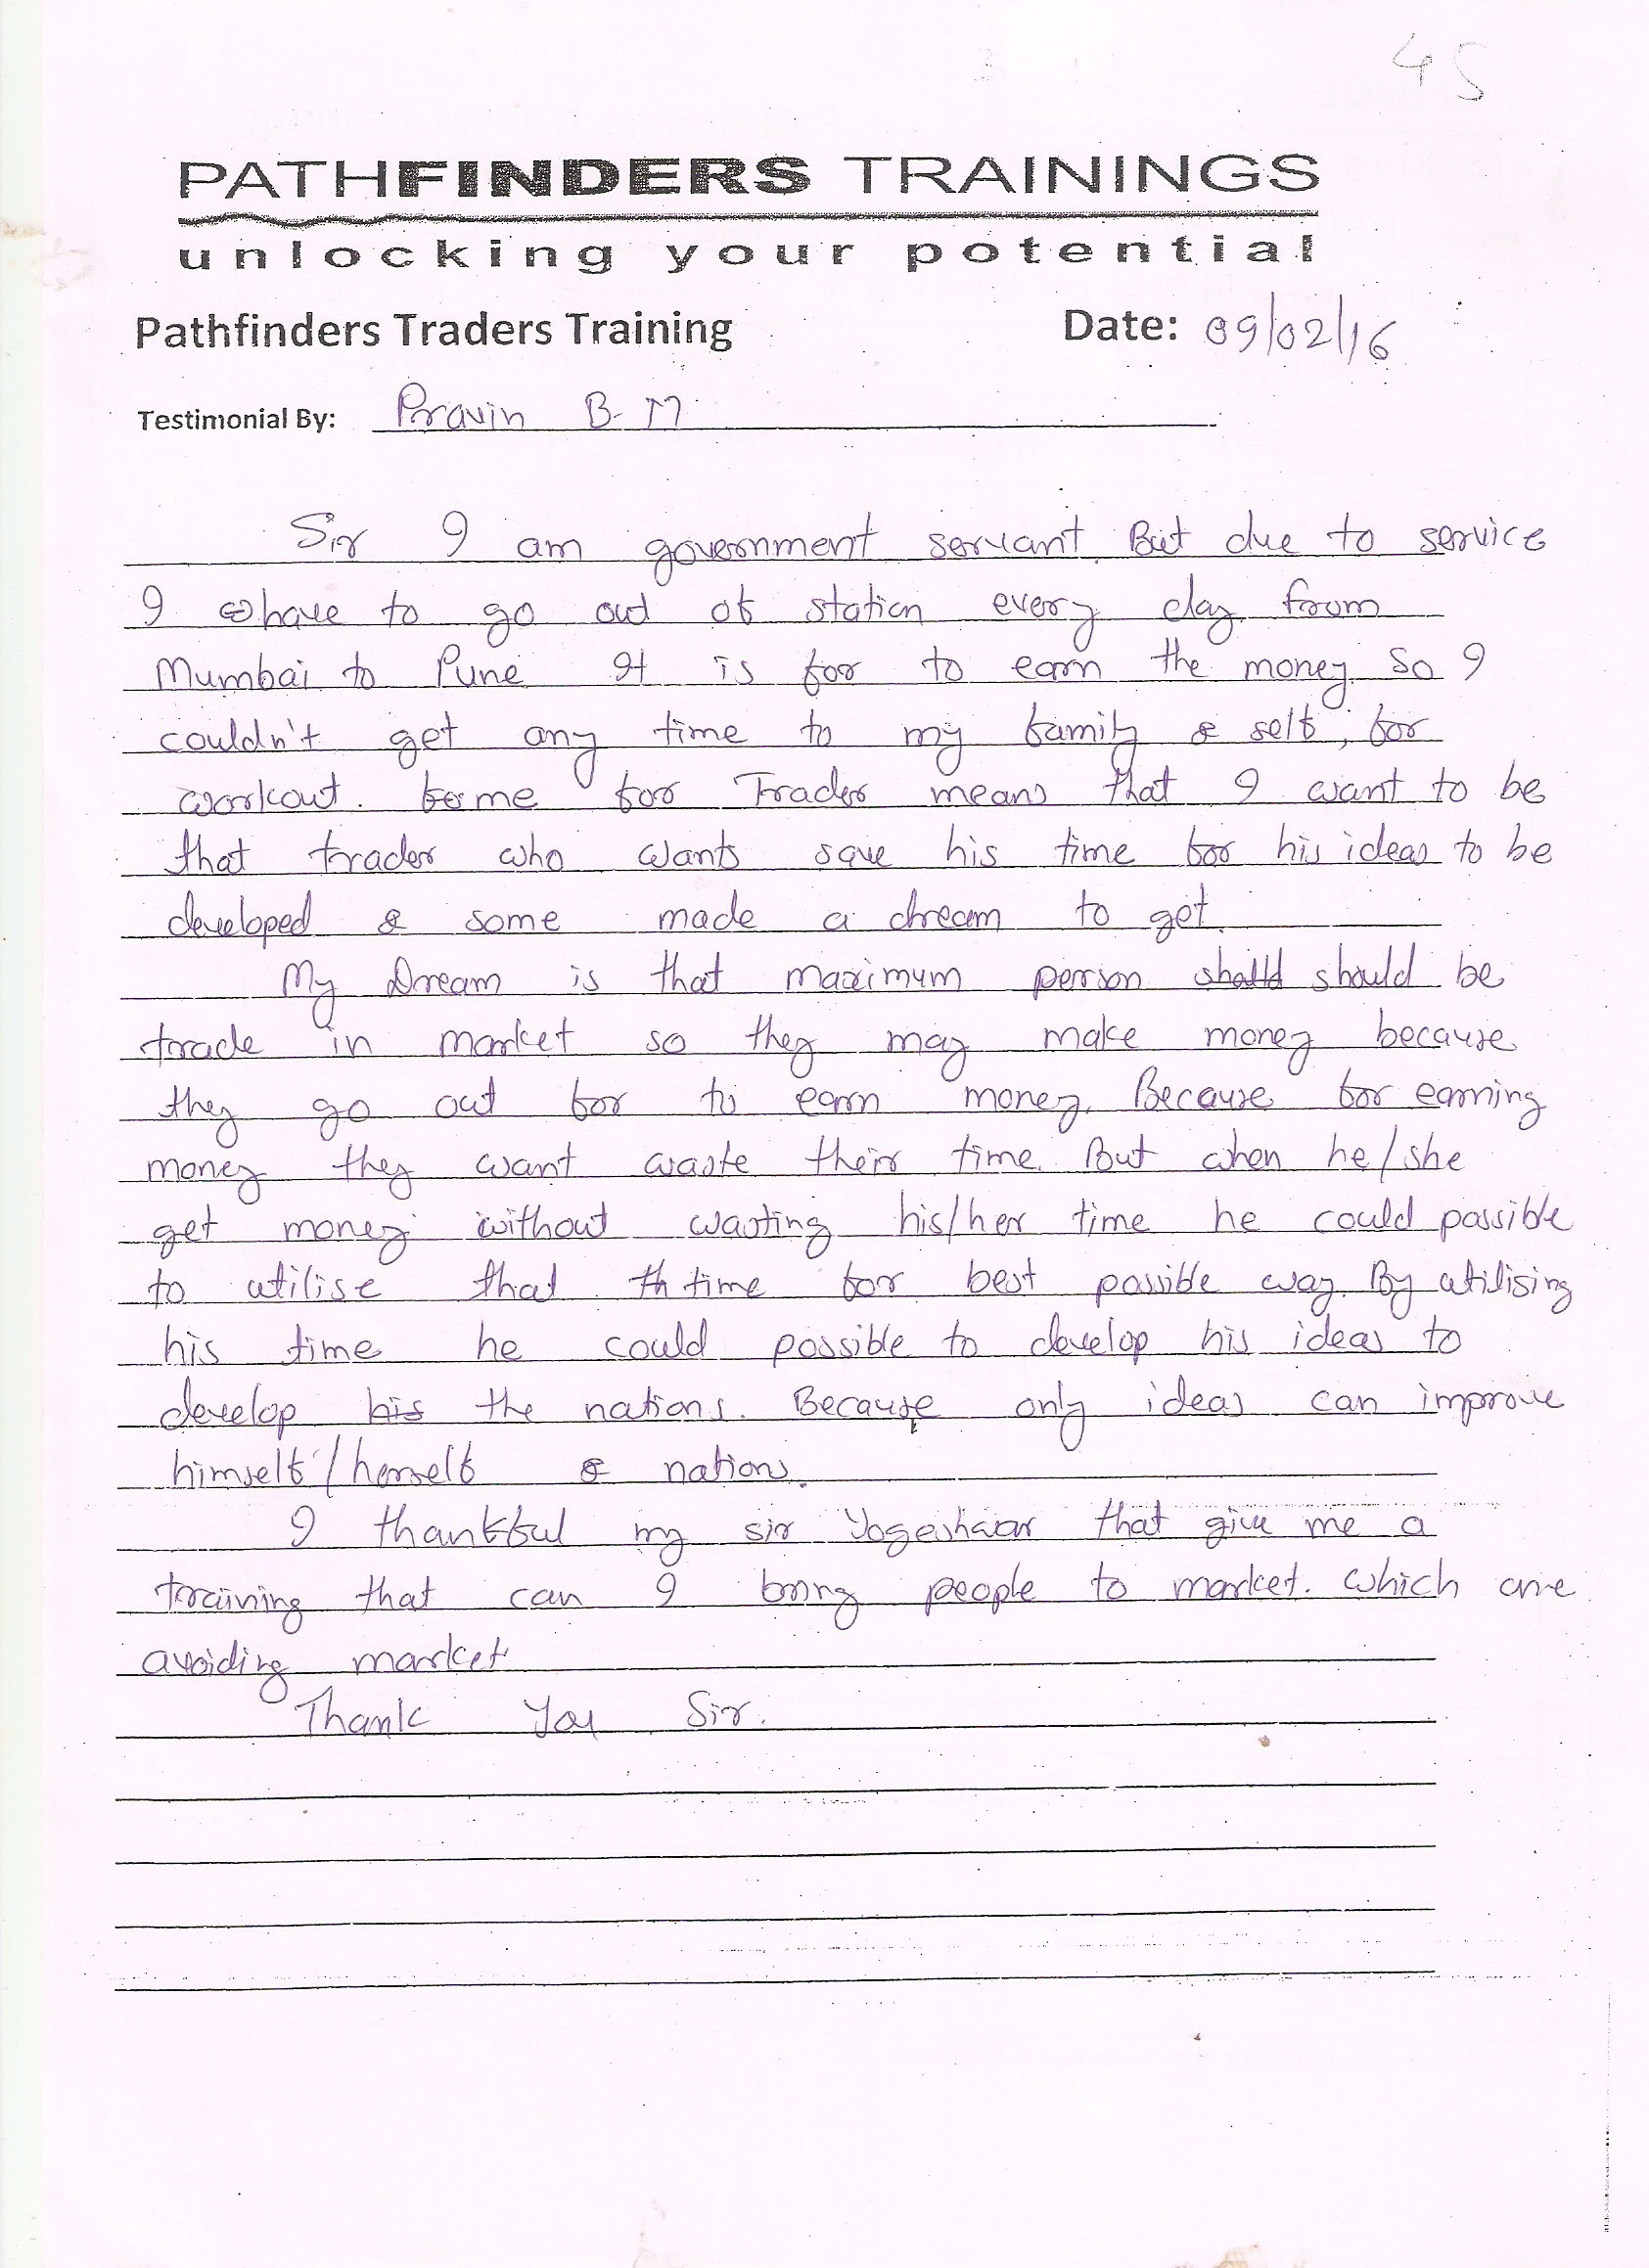 45
PATHFINDERS TRAININGS
unlocking your potential
Pathfinders Traders Training Date: 09/02/16
Testimonial By: Pravin B. M
Sir I am government servant. But due to service
I have to go out of station every day from
Mumbai to Pune It is for to earn the money so I
couldn't get any time to my family & self, for
workout. for me for Trader means that I want to be
that trader who wants save his time for his ideas to be
developed & some made a dream to get.
My Dream is that maximum person should should be
trade in market so they may make money because
they go out for to earn money. Because for earning
money they want waste their time. But when he/she
get money without wasting his/her time he could possible
to utilise that th time for best possible way. By utilising
his time he could possible to develop his ideas to
develop his the nations. Because only ideas can improve
himself/herself & nations.
I thankful my sir Yogeshwar that give me a
training that can I bring people to market. which are
avoiding market
Thank You Sir.